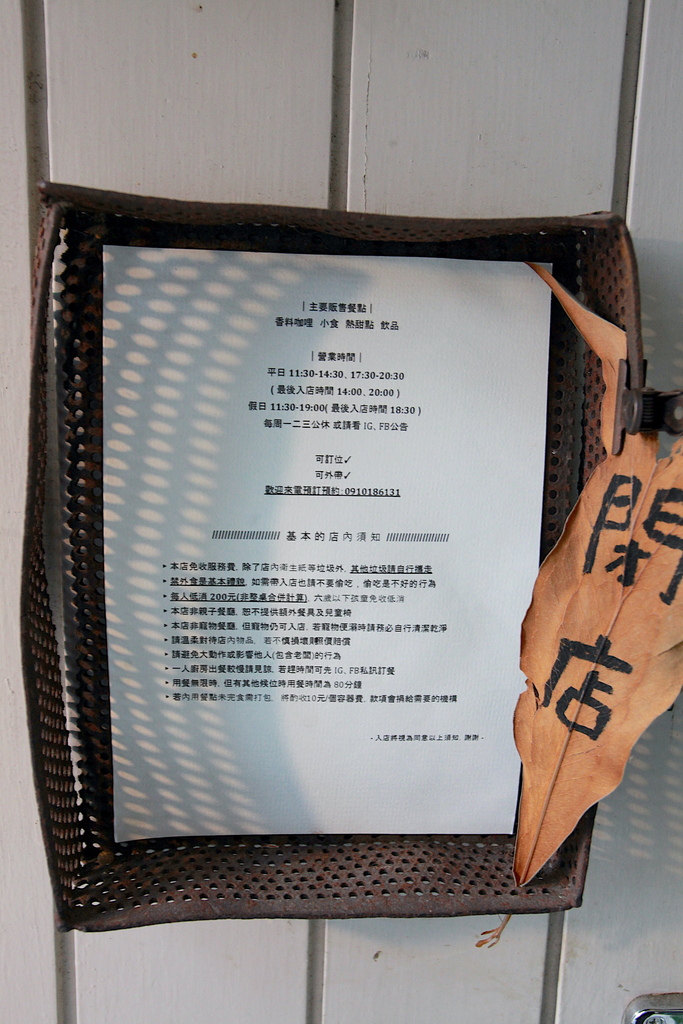 | 主要販售餐點 |
香料咖哩 小食 熱甜點 飲品
| 營業時間 |
平日 11:30-14:30, 17:30-20:30
( 最後入店時間 14:00, 20:00 )
假日 11:30-19:00( 最後入店時間 18:30 )
每周一二三公休 或請看 IG、FB公告
可訂位✓
可外帶✓
歡迎來電預訂預約: 0910186131
//////////////////// 基本的店內須知 ////////////////////
▸ 本店免收服務費, 除了店內衛生紙等垃圾外, 其他垃圾請自行攜走
▸ 禁外食是基本禮貌, 如需帶入店也請不要偷吃 , 偷吃是不好的行為
▸ 每人低消 200元(非整桌合併計算), 六歲以下孩童免收低消
▸ 本店非親子餐廳, 恕不提供額外餐具及兒童椅
▸ 本店非寵物餐廳, 但寵物仍可入店, 若寵物便溺時請務必自行清潔乾淨
▸ 請溫柔對待店內物品, 若不慎損壞則照價賠償
▸ 請避免大動作或影響他人(包含老闆)的行為
▸ 一人廚房出餐較慢請見諒, 若趕時間可先 IG、FB私訊訂餐
▸ 用餐無限時, 但有其他候位時用餐時間為 80分鐘
▸ 若內用餐點未完食需打包, 將酌收10元/個容器費, 款項會捐給需要的機構
- 入店將視為同意以上須知, 謝謝 -
閉
店